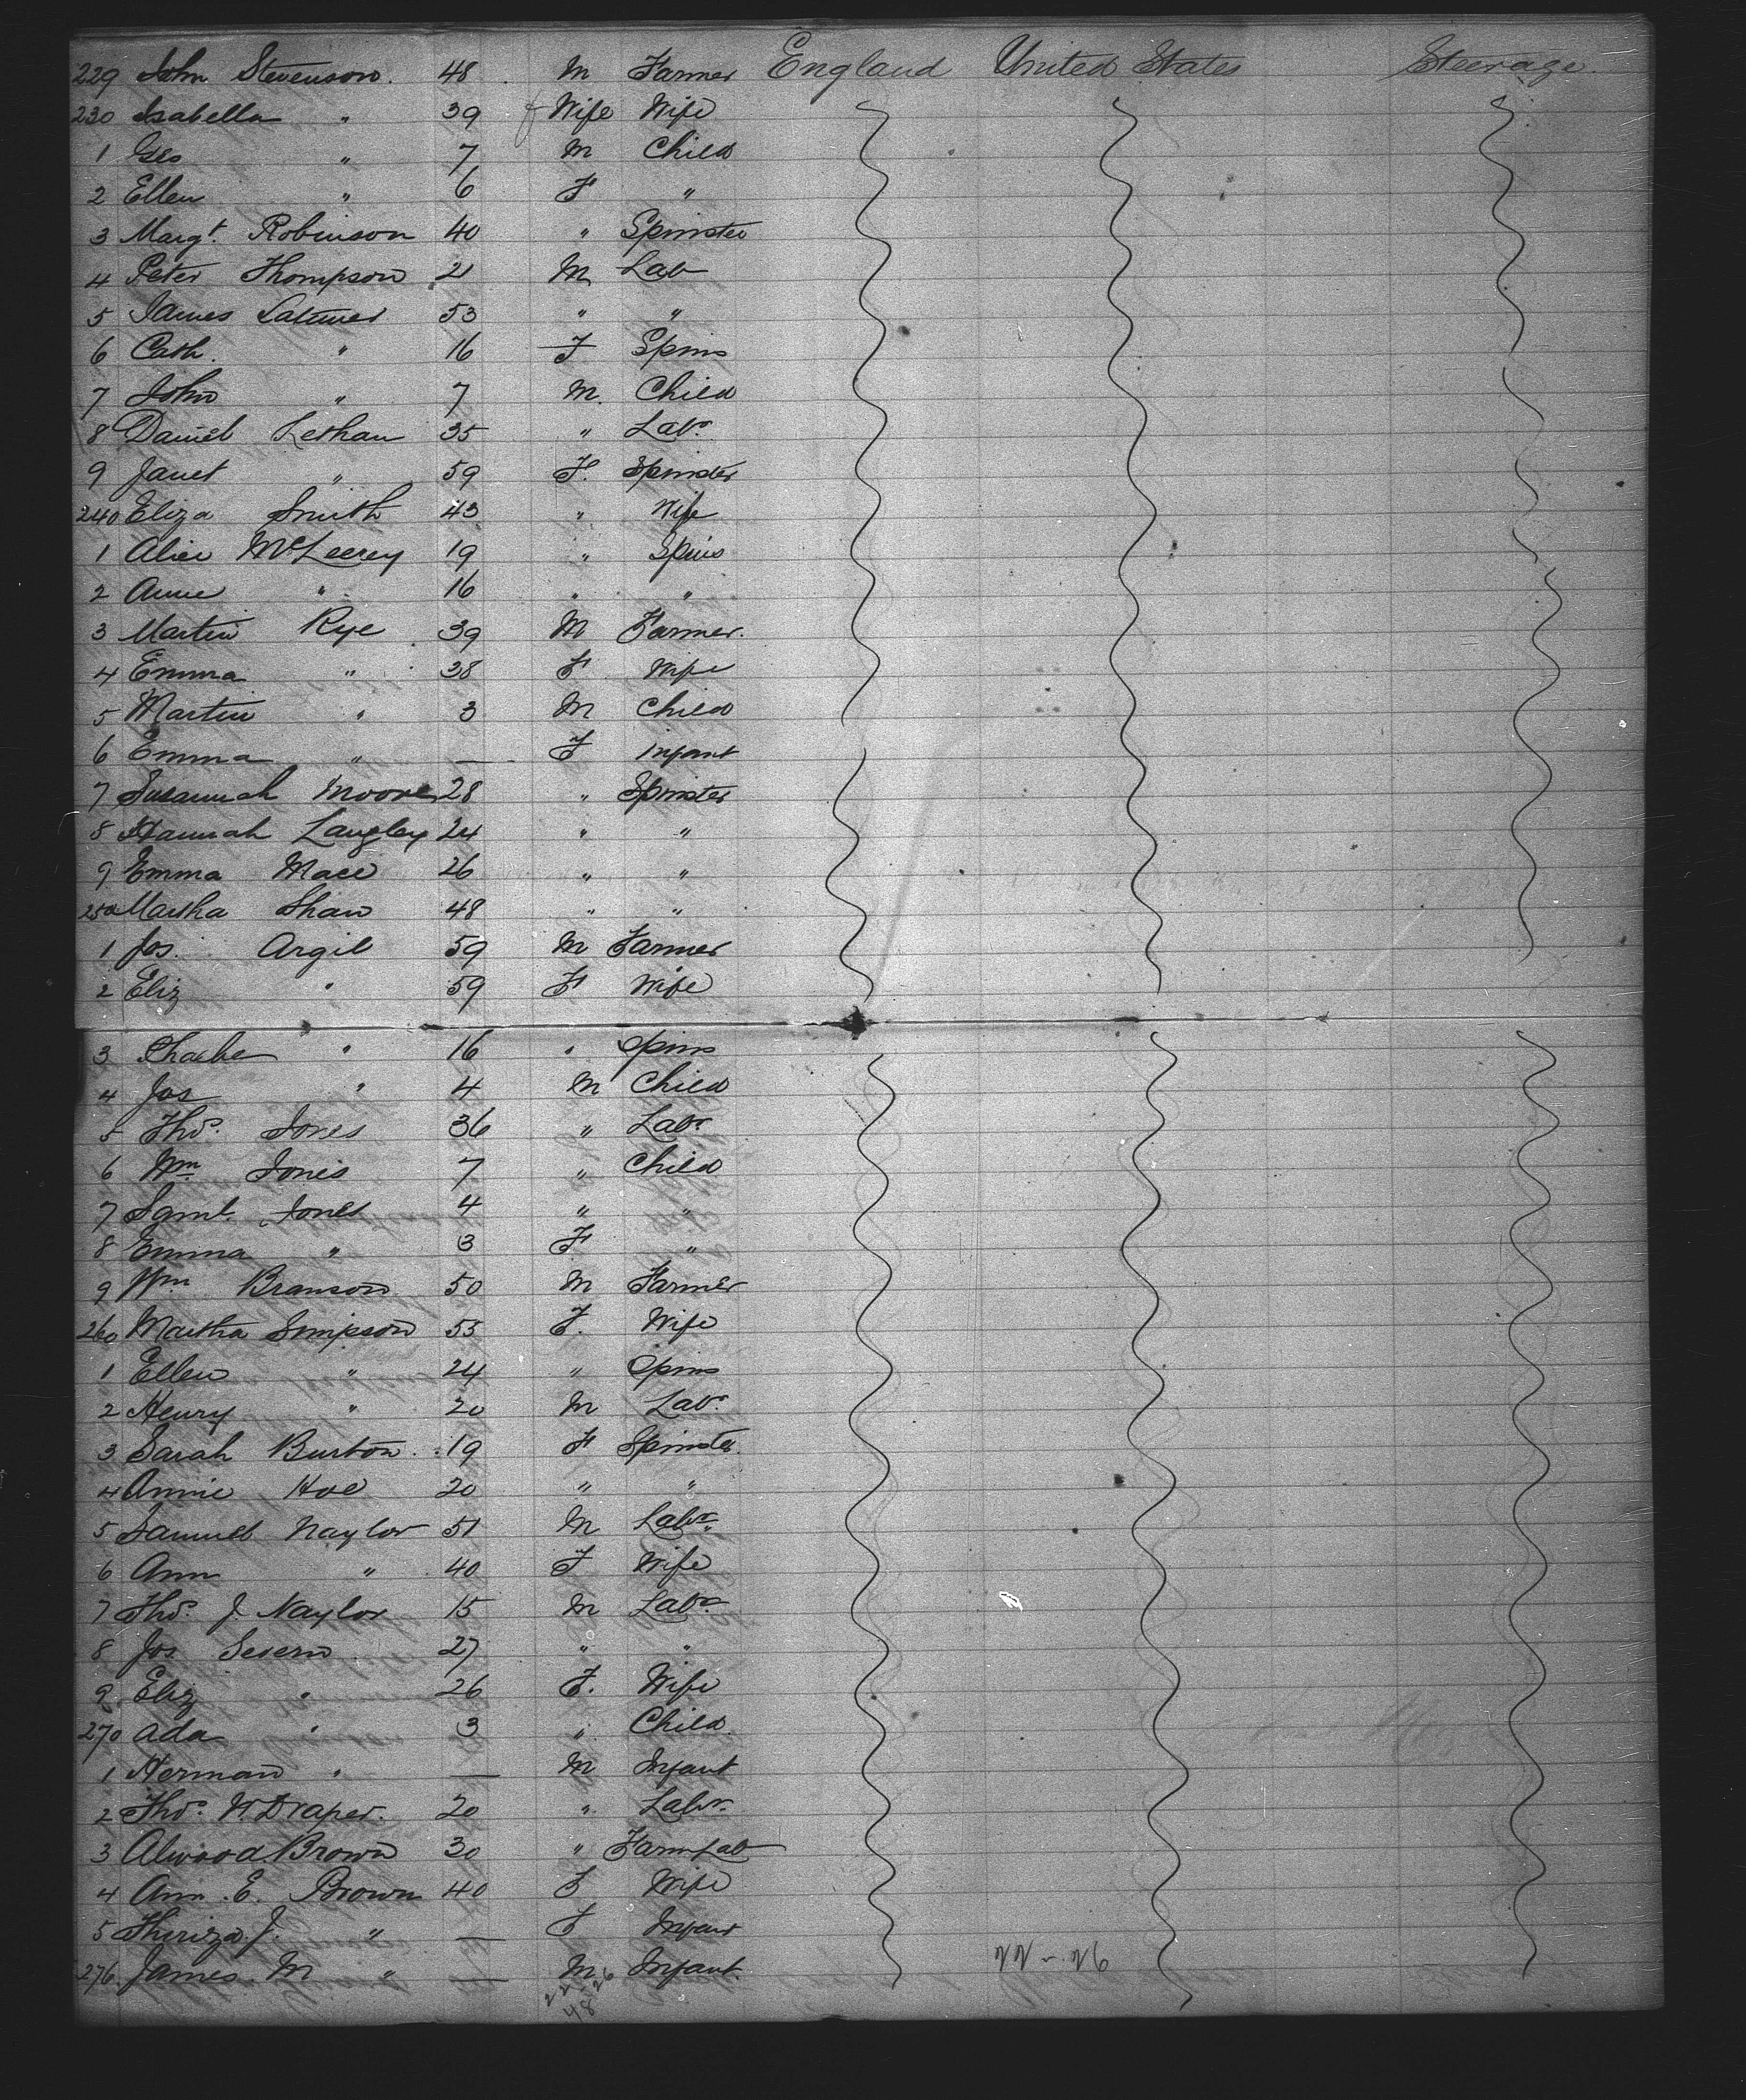 229 John Stevenson. 48 M Farmer England United States Steerage.
230 Isabella " 39 f Wife Wife
1 Geo " 7 M Child
2 Ellen " 6 F "
3 Margt. Robinson 40 " Spinster
4 Peter Thompson 21 M Lab
5 James Latimer 53 " "
6 Cath. " 16 F Spins
7 John " 7 M. Child
8 Daniel 35 " Labr.
9 Janet " 59 F. Spinster
240 Eliza Smith 43 " Wife
1 Alice 19 " Spins
2 Anne " 16 " "
3 Martin Rye 39 M Farmer.
4 Emma " 38 F Wife
5 Martin " 3 M Child
6 Emma " — F Infant
7 Susannah Moore 28 " Spinster
8 Hannah Langley 24 " "
9 Emma Mace 26 " "
250 Martha Shaw 48 " "
1 Jos. Argil 59 M Farmer
2 Eliz " 59 F Wife
3 Phoebe " 16 " Spins
4 Jos " 4 M Child
5 Thos. Jones 36 " Labr.
6 Wm Jones 7 " Child
7 Saml. Jones 4 " "
8 Emma " 3 F "
9 Wm Branson 50 M Farmer
260 Martha Simpson 53 F. Wife
1 Ellen " 24 " Spins
2 Henry " 20 M Labr.
3 Sarah Burton 19 F Spinster.
4 Annie Hoe 20 " "
5 Samuel Naylor 51 M Labr.
6 Ann " 40 F Wife
7 Thos. J. Naylor 15 M Labr.
8 Jos. Severn 27 " "
9 Eliz " 26 F. Wife
270 Ada " 3 " Child.
1 Herman " — M Infant
2 Thos. W. Draper. 20 " Labr.
3 Alwood Brown 30 " Farm Lab
4 Ann. E. Brown 40 F Wife
5 Thiriza. J. " — F Infant
276 James. M " — M Infant.
22 26
48